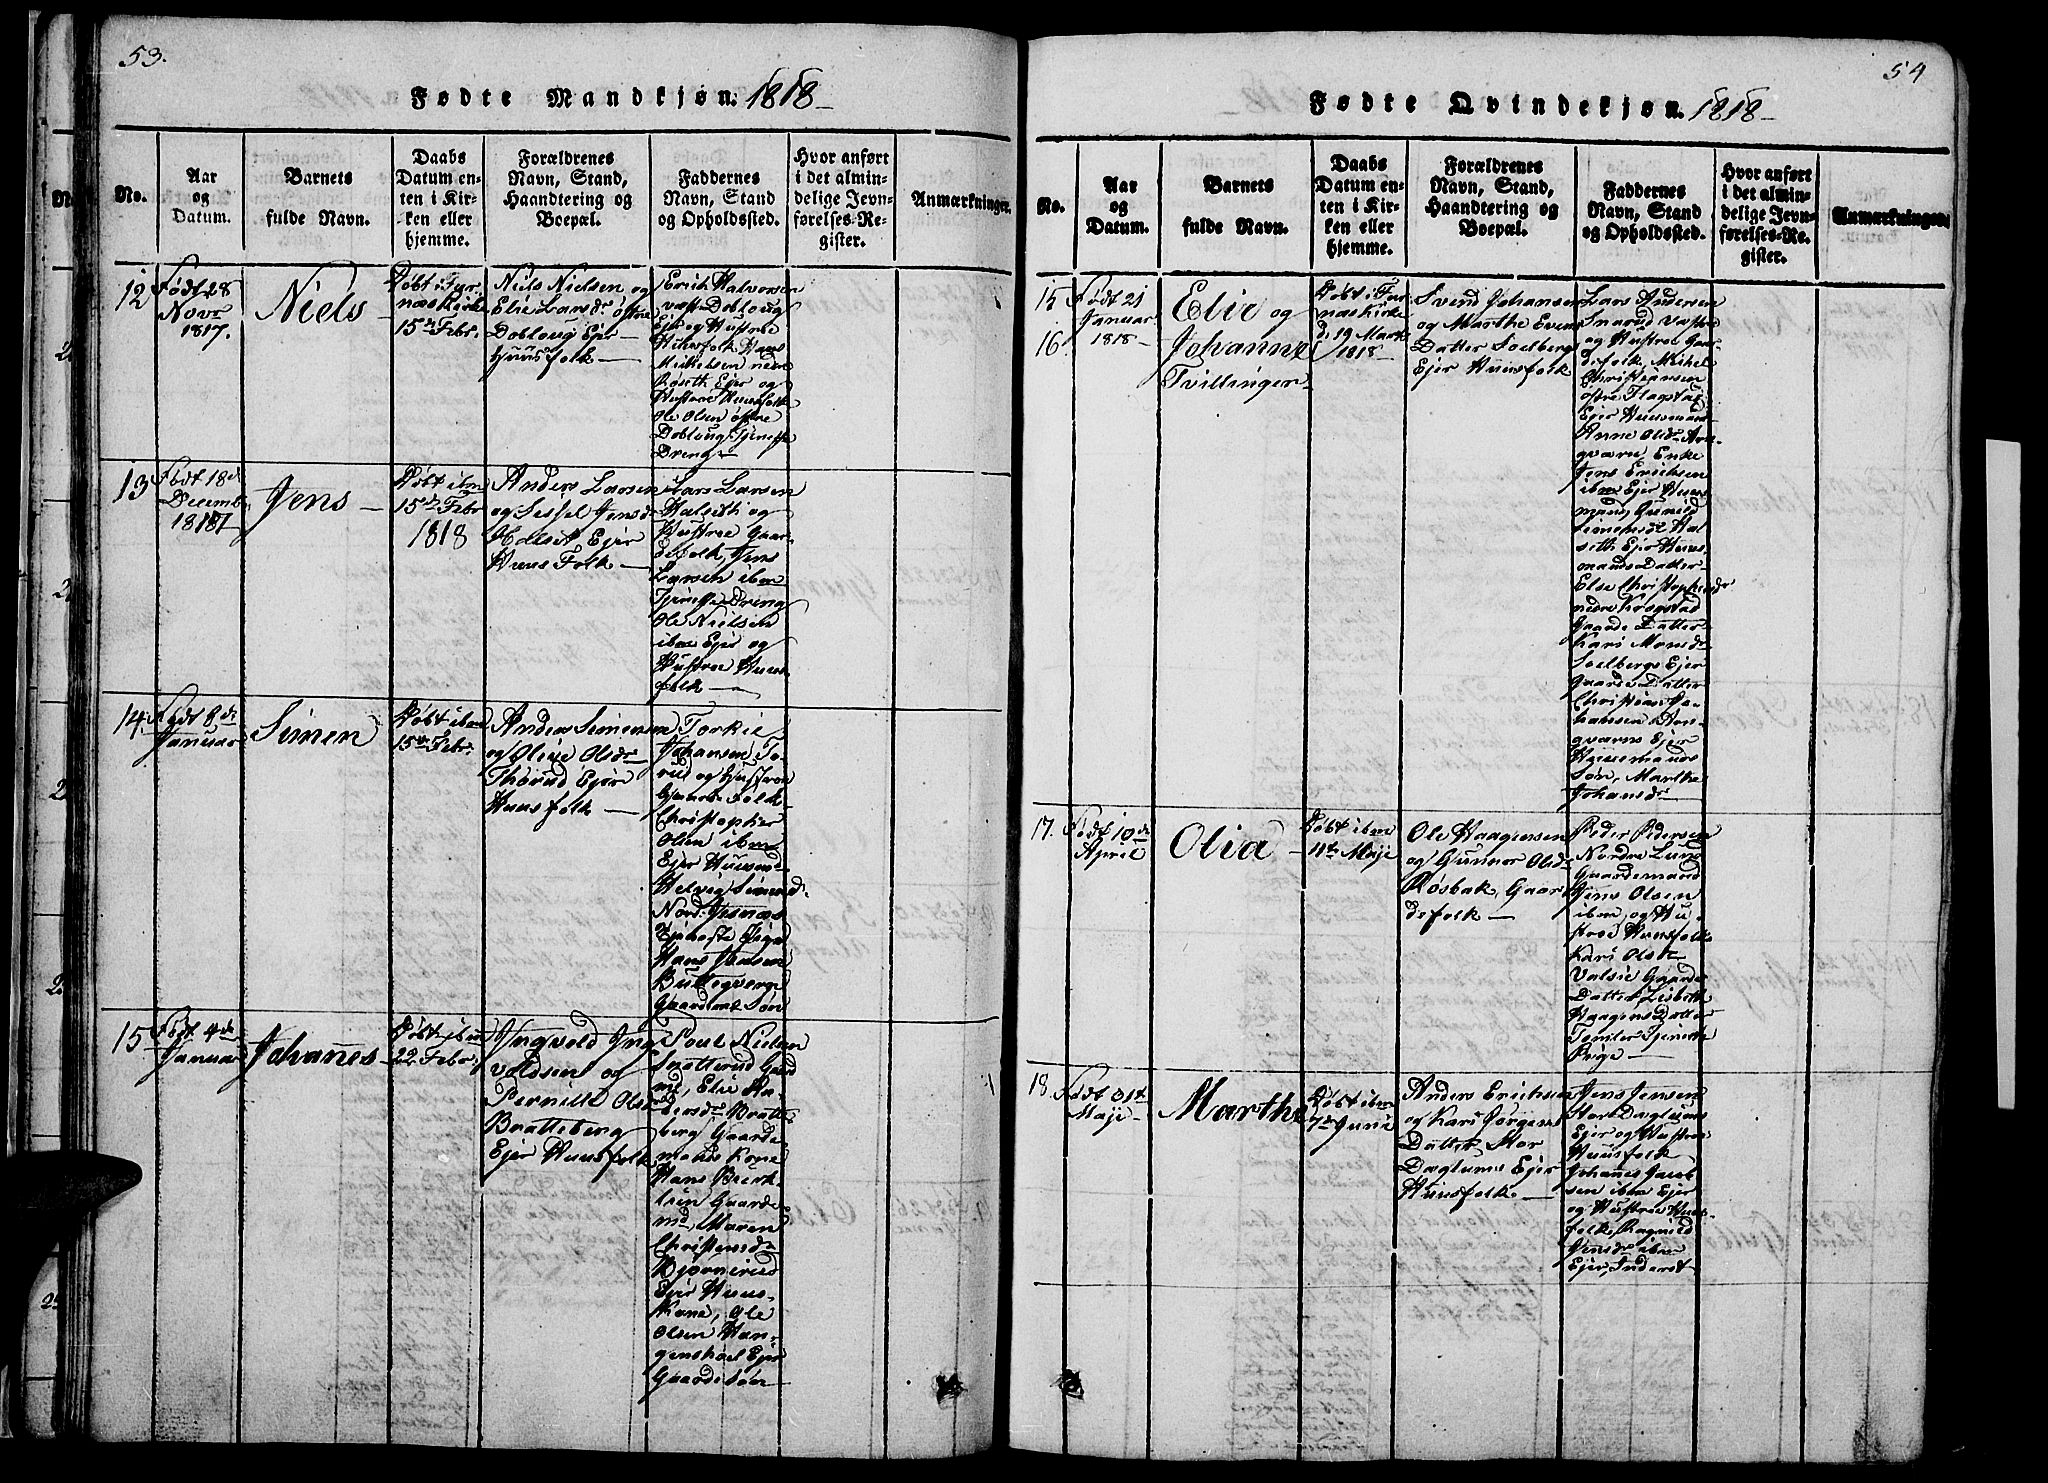 53.
Fødte Mandkjøn. 1818
No.
Aar
og
Datum.
Barnets
fulde Navn.
Daabs
Datum en-
ten i Kir-
ken eller
hjemme.
Forældrenes
Navn, Stand,
Haandtering og
Boepæl.
Faddernes
Navn, Stand
og Opholdssted.
Hvor anført
i det almin-
delige Jevn-
førelses-Re-
gister.
Anmærkninger.
12
Født 28
Novr
1817.
Niels
Døbt i Fur-
næs Kirke
15de Febr.
Niels Nielsen og
Elie Larsdr østre
Dobloug Ejer
Huusfolk
Erich Halvorsen
vestre Dobloug
Ejer og Hustroe
Huusfolk, Hans
Mickelsen nedre
Røseth Ejer og
Hustroe Huusfolk
Ole Olsen østre
Doblough Tjeneste
Dreng
13
Født 18de
Decembr
1817
Jens
Døbt ibm
15de Febr
1818
Anders Larsen
og Sissel Jensdr
Holset Ejer
Huus Folk
Lars Larsen
Halseth og
Hustroe Gaar-
defolk, Jens
Larsen ibm
Tjeneste Dreng
Ole Nielsen
ibm Ejer og
Hustroe Huus
folk
14
Født 8de
Januar
Simen
Døbt ibm
15de Febr.
Anders Simensen
og Olive Olsdr
Thorud Ejer
Huusfolk
Torkie
Johansen To-
rud og Hustroe
Gaarde Folk
Christopher
Olsen ibm
Ejer Huusm.
Helvig Simensdr
Nord Jesnæs
Tjeneste Pige
Hans Jensen
Buttegverge
Gaardms Søn
15
Født 4de
Januar
Johanes
Døbt ibm
22 Febr.
Yngvold Yng
voldsen og
Pernille Olsdr
Bratteberg
Ejer Huusfolk
Poul Nielsen
Snatterud Gaard
md, Elie Ha-
bersdr Bratte-
berg Gaarde
mands Kone
Hans Bierk-
lien Gaarde
md, Maren
Christensdr
Bjørnerud
Ejer Huus-
Kone, Ole
Olsen Haa-
genshoel Ejer
Gaardesøn
54
Fødte Qvindekjøn. 1818
No.
Aar
og
Datum.
Barnets
fulde Navn.
Daabs
Datum en-
ten i Kir-
ken eller
hjemme.
Forældrenes
Navn, Stand,
Haandtering og
Boepæl.
Faddernes
Navn, Stand
og Opholdssted.
Hvor anført
i det almin-
delige Jevn-
førelses-Re-
gister.
Anmærkninger.
15
16.
Født 21
Januar
1818
Elie og
Johanne
Tvillinger
Døbt i Fur-
næs Kirke
d. 19 Marts
1818
Svend Johansen
og Marthe Evens
Datter Soelberg
Ejer Huusfolk
Lars Andersen
Snarud Vestre
og Hustroe Gaar-
defolk, Michel
Christiansen
østre Flagstad
Ejer Huusmand
Anne Olsdr
Enke
Jens Erichsen
ibm Ejer Huus
mand, Gunild
Simensdr Hal
seth Ejer Huus-
mands Datter
Else Christophersdr
nedre Krogstad
Gaarde Datter
Kari Monsdr
Soelbergs Ejer
Gaarde Datter
Christian Jo-
hansen
Ejer
Huusmands
Søn, Marthe
Johansdr
17.
Født 10de
April
Olia
Døbt ibm
11te Maje
Ole Haagensen
og Gunnor Olsdr
Røsbak, Gaar
defolk
Peder Pedersen
Nordre Lund
Gaardemand
Jens Olsen
ibm, og Hu-
stroe Huusfolk
Kari Olsdr
Valsie Gaarde
Datter, Lisbeth
Haagens Datter
Tomter Tjeneste
Pige
18
Født 31te
Maje
Marthe
Døbt ibm
7de Junie
Anders Erichsen
og Kari Jørgens
Datter, Stor
Daglums Ejer
Huusfolk
Jens Jensen
Stor Daglums
Ejer og Hustroe
Huusfolk
Johanes Jacob
sen ibm Ejer
og Hustroe Huus-
folk, Ragnild
Jensdr ibm
Ejer Inderst